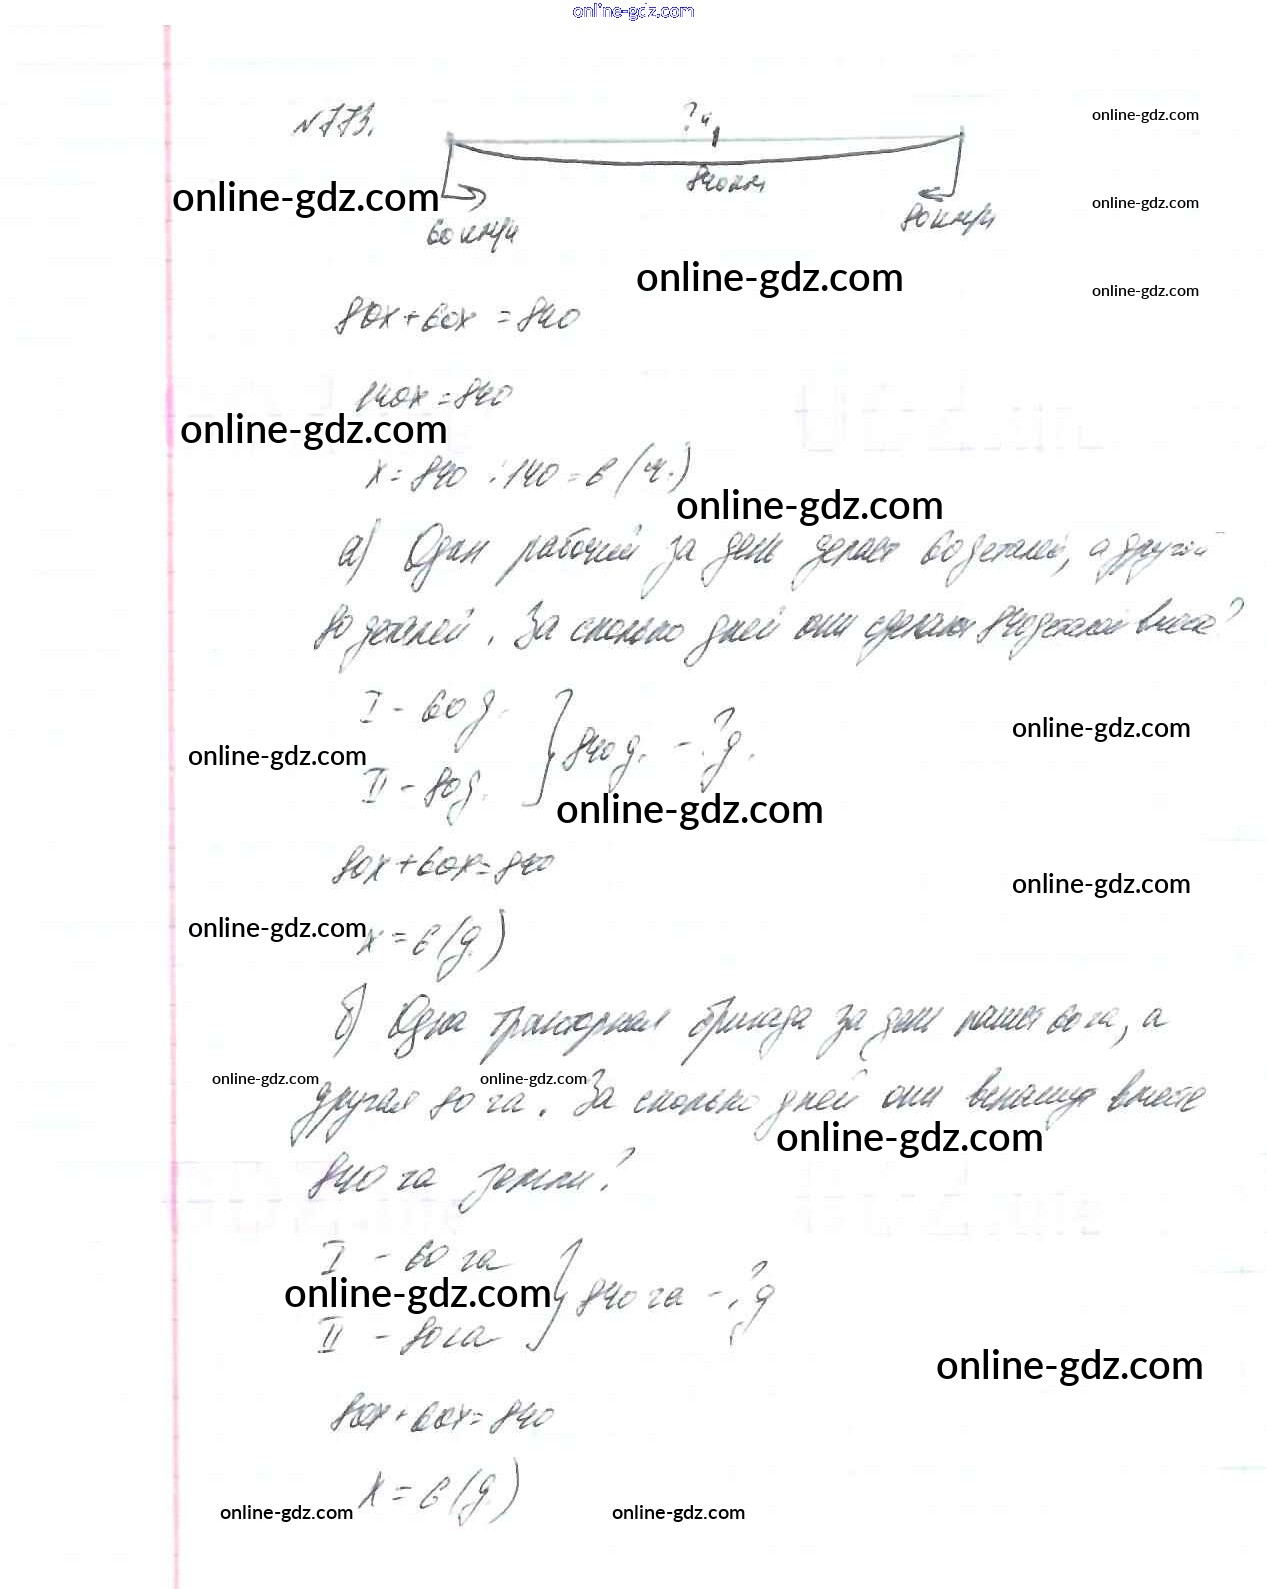 online-gdz.com
№773.
?ч
online-gdz.com
840км
online-gdz.com
60 км/ч
80 км/ч
online-gdz.com
online-gdz.com
online-gdz.com
80x + 60x = 840
140x = 840
online-gdz.com
x = 840 : 140 = 6 (ч.)
online-gdz.com
а) Один рабочий за день делает 60 деталей, а другой
80 деталей. За сколько дней они сделают 840 деталей вместе?
I - 60 д.
online-gdz.com
840 д. - ? д.
online-gdz.com
II - 80 д.
online-gdz.com
80x + 60x = 840
online-gdz.com
online-gdz.com
x = 6 (д.)
б) Одна тракторная бригада за день пашет 60 га, а
online-gdz.com online-gdz.com
другая 80 га. За сколько дней они вспашут вместе
online-gdz.com
840 га земли?
I - 60 га
online-gdz.com
840 га - ? д
II - 80 га
online-gdz.com
80x + 60x = 840
x = 6 (д.)
online-gdz.com online-gdz.com